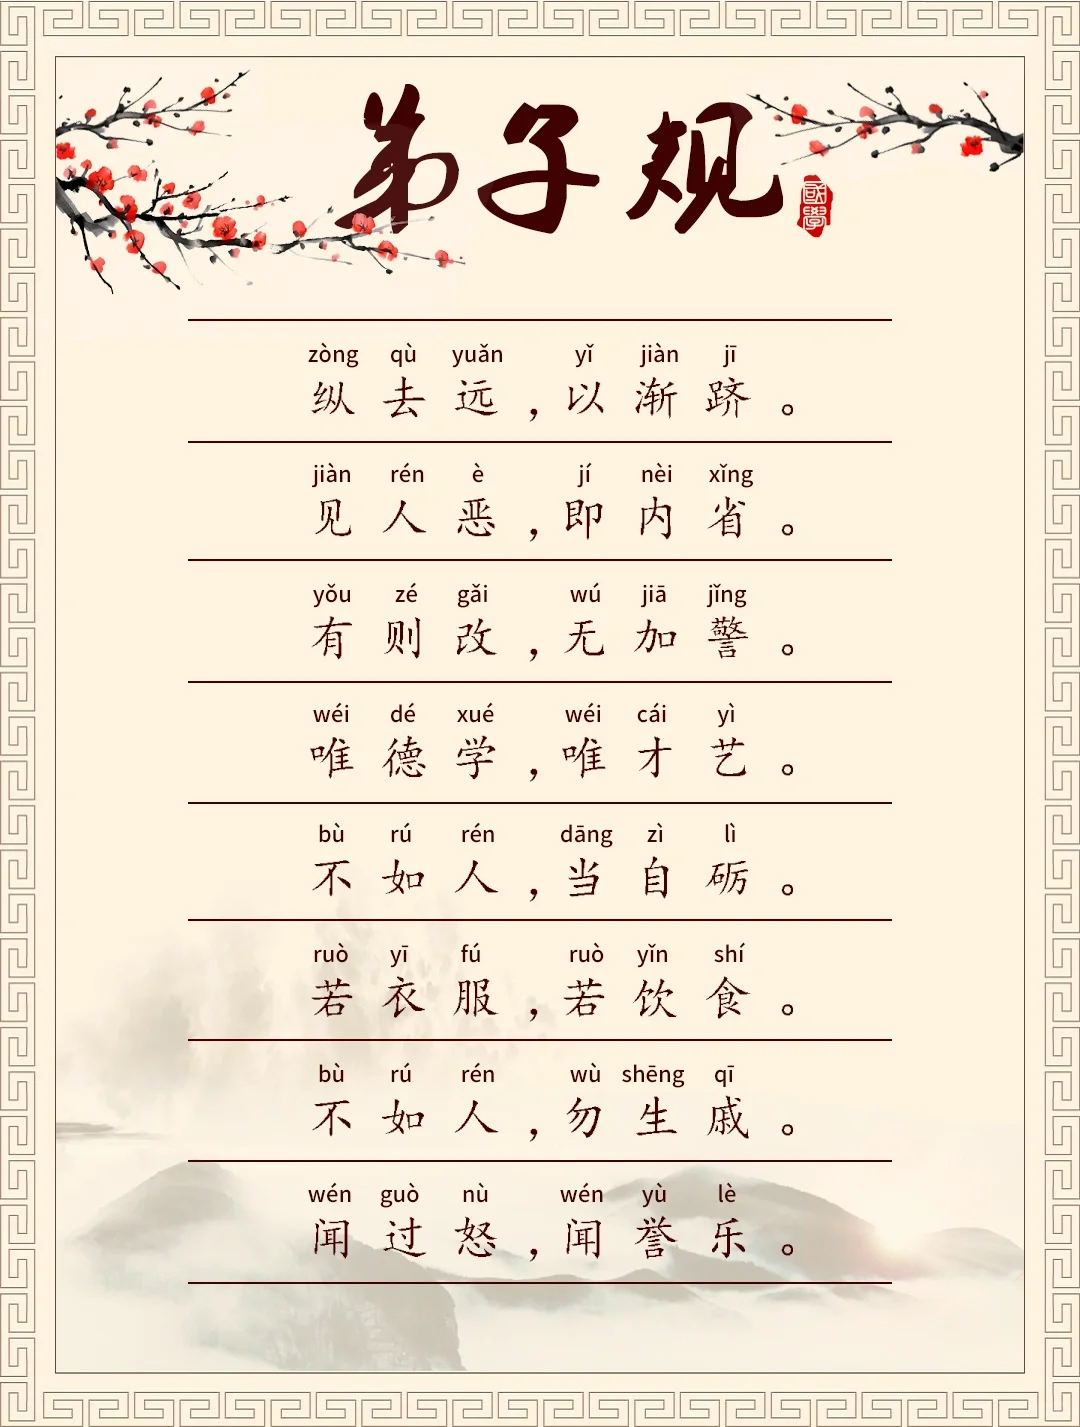 弟子规
國學
zòng qù yuǎn yǐ jiàn jī
纵去远，以渐跻。
jiàn rén è jí nèi xǐng
见人恶，即内省。
yǒu zé gǎi wú jiā jǐng
有则改，无加警。
wéi dé xué wéi cái yì
唯德学，唯才艺。
bù rú rén dāng zì lì
不如人，当自砺。
ruò yī fú ruò yǐn shí
若衣服，若饮食。
bù rú rén wù shēng qī
不如人，勿生戚。
wén guò nù wén yù lè
闻过怒，闻誉乐。